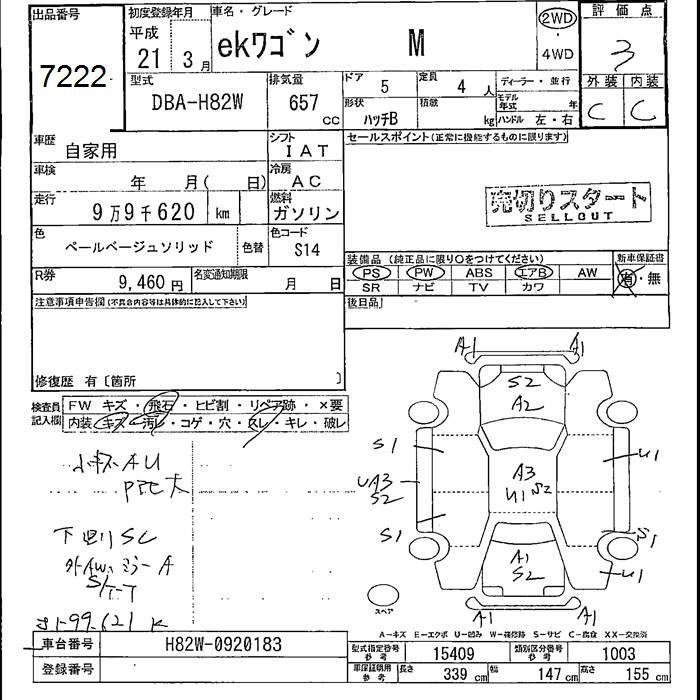 出品番号
7222
初度登録年月
平成
21 3月
車名・グレード
ekワゴン M
2WD
・
4WD
評価点
3
外装 内装
C C
型式
DBA-H82W
排気量
657
cc
ドア 5
定員 4 人
ディーラー・並行
形状 ハッチB
積載 kg
モデル年式 年
ハンドル 左・右
車歴
自家用
シフト
IAT
車検
年 月( 日)
冷房
AC
走行
9万9千620 km
燃料
ガソリン
色
ペールベージュソリッド
色替
色コード
S14
R券
9,460円
名変通知期限
月 日
セールスポイント(正常に機能するものに限ります)
売切りスタート
SELLOUT
装備品 (純正品に限り○をつけてください)
PS PW ABS エアB AW
SR ナビ TV カワ
新車保証書
有・無
後日品
注意事項申告欄(不具合内容等は具体的に記入して下さい)
修復歴 有〔箇所 〕
検査員
記入欄
FW キズ・飛石・ヒビ割・リペア跡・×要
内装・キズ・汚レ・コゲ・穴・スレ・キレ・破レ
A1 A1
S2
A2
S1
UA3
S2
A3
U1 S2
U1
S1
S1
A1
S2
U1
A1 A1
スペア
A-キズ E-エクボ U-凹み W-補修跡 S-サビ C-腐食 XX-交換済
車台番号
H82W-0920183
登録番号
型式指定番号
参考
15409
類別区分番号
参考
1003
車庫証明用
参考
長さ 339 cm 幅 147 cm 高さ 155 cm